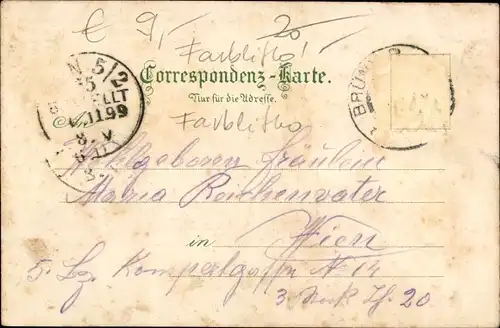 € 9,- 20
Farblitho!
Correspondenz-Karte.
Nur für die Adresse.
Farblitho
5/2
BESTELLT
99
BRÜNN
Wohlgeboren Fräulein
Maria Reichenvater
in Wien
5. Bz. N 14
3. Stock Th. 20